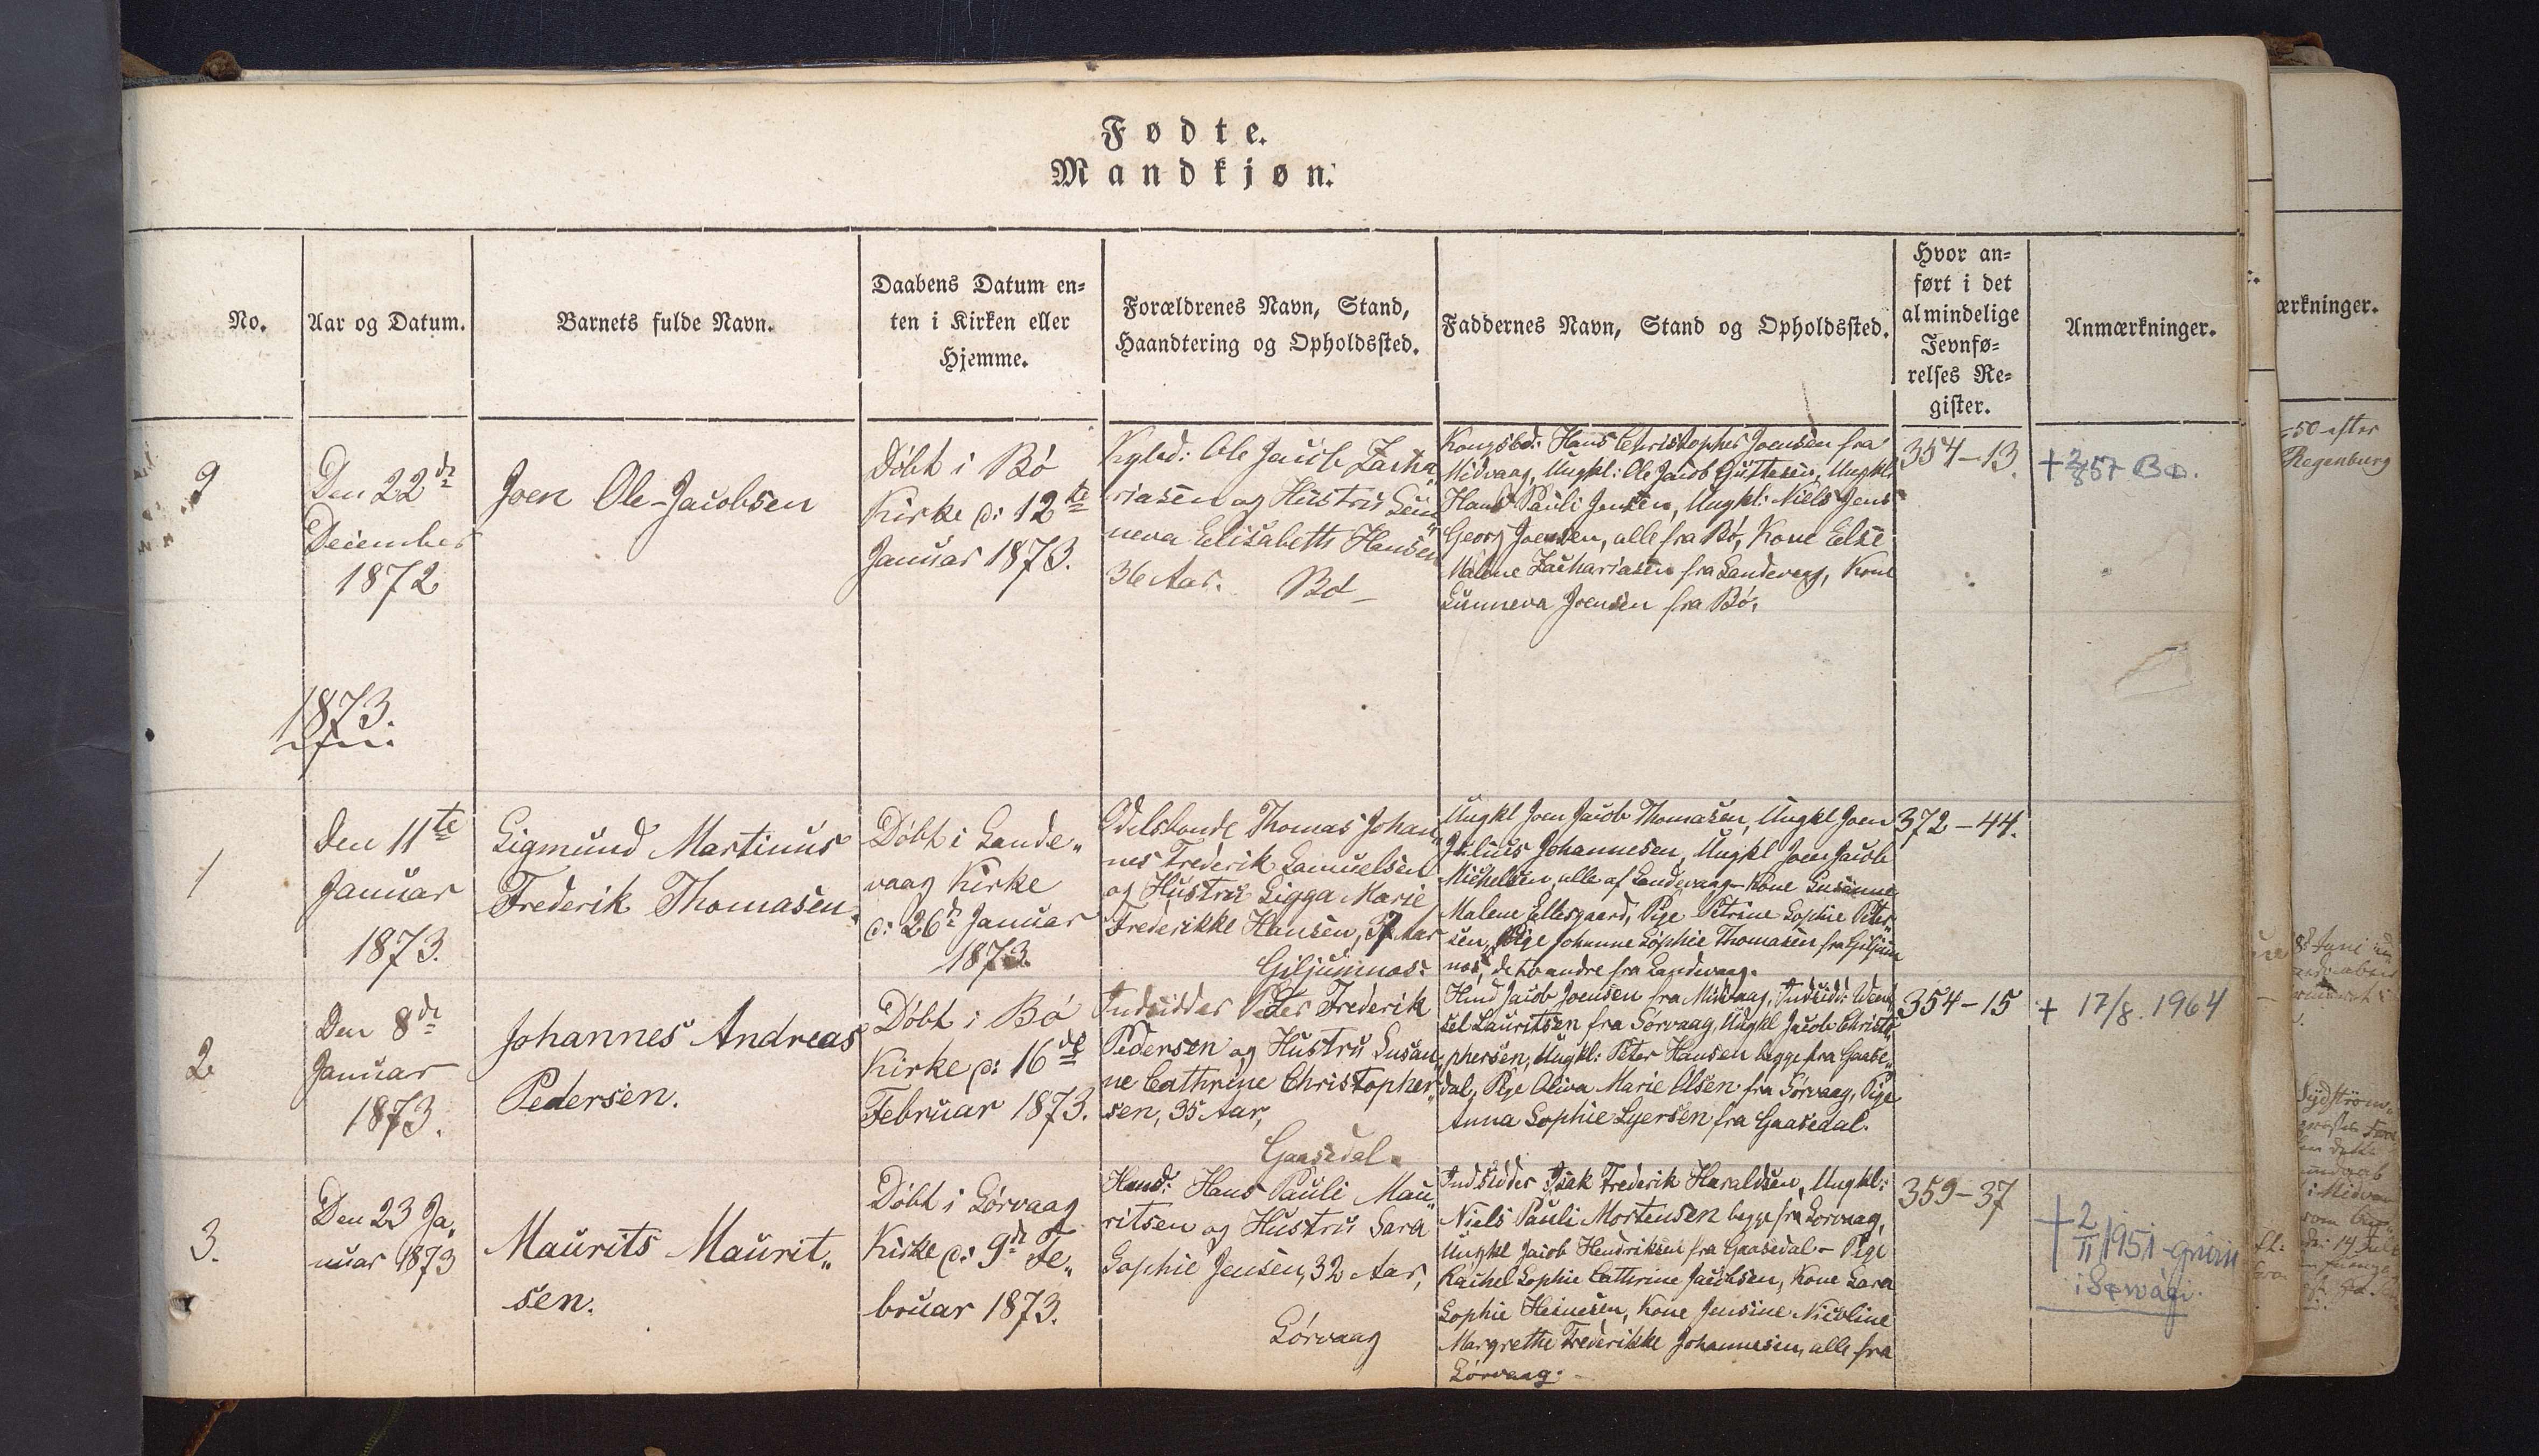 Fødte.
Mandkjøn.
No.
Aar og Datum.
Barnets fulde Navn.
Daabens Datum en-
ten i Kirken eller
Hjemme.
Forældrenes Navn, Stand,
Haandtering og Opholdssted.
Faddernes Navn, Stand og Opholdssted.
Hvor an-
ført i det
almindelige
Jevnfø-
relses Re-
gister.
Anmærkninger.
9
Den 22de
December
1872
Joen Ole-Jacobsen
Döbt i Bö
Kirke d: 12te
Januar 1873.
Ole Jacob Zacha„
riasen og Hustru Sun„
neva Elisabeth Hansen
36 Aar. Bö
Kongsbd: Hans Christopher Joensen fra
Midvaag, Ungkl: Ole Jacob Guttesen, Ungkl:
Hans Pauli Jensen, Ungkl: Niels Jens
Georg Joensen, alle fra Bö, Kone Else
Malene Zachariasen fra Sandevaag, Kone
Sunneva Joensen fra Bö.
354-13.
1873.
1
Den 11te
Januar
1873.
Sigmund Martinus
Frederik Thomasen.
Döbt i Sande„
vaag Kirke
d: 26de Januar
1873.
Odelsbonde Thomas Johan„
nes Frederik Samuelsen
og Hustru Sigga Marie
Frederikke Hansen, 37 Aar
Giljumnæs:
Ungkl Joen Jacob Thomasen, Ungkl Joen
Julius Johannesen, Ungkl Joen Jacob
Michelsen, alle af Sandevaag - Kone Susanne
Malene Ellesgaard, Pige Petrine Sophie Peter„
sen, Pige Johanne Sophie Thomasen fra Giljum
næs, de to andre fra Sandevaag.
372-44.
2
Den 8de
Januar
1873.
Johannes Andreas
Pedersen.
Döbt i Bö
Kirke d: 16de
Februar 1873.
Indsidder Peter Frederik
Pedersen og Hustru Susan„
ne Cathrine Christopher„
sen, 35 Aar,
Gaasedal.
Jacob Joensen fra Midvaag, Indsid:
Lauritsen fra Sörvaag, Ungkl Jacob Christo„
phersen, Ungkl: Peter Hansen begge fra Gaase„
dal, Pige Oliva Marie Olsen fra Sörvaag, Pige
Anna Sophie Lyersen fra Gaasedal.
354-15
+ 17/8. 1964
3.
Den 23 Ja„
nuar 1873
Maurits Maurit„
sen.
Döbt i Sörvaag
Kirke d: 9de Fe„
bruar 1873.
Hans Pauli Mau„
ritsen og Hustru Sara
Sophie Jensen, 32 Aar,
Sörvaag
Indsidder Isak Frederik Haraldsen, Ungkl:
Niels Pauli Mortensen begge fra Sorvaag,
Ungkl Jacob Hendriksen fra Gaasedal - Pige
Rachel Sophie Cathrine Jacobsen, Kone Sara
Sophie Heinesen, Kone Jensine Nicoline
Margrethe Frederikke Johannesen, alle fra
Sörvaag.
359-37
+ 2/11 1951
ærkninger.
-50 efter
Regenburg